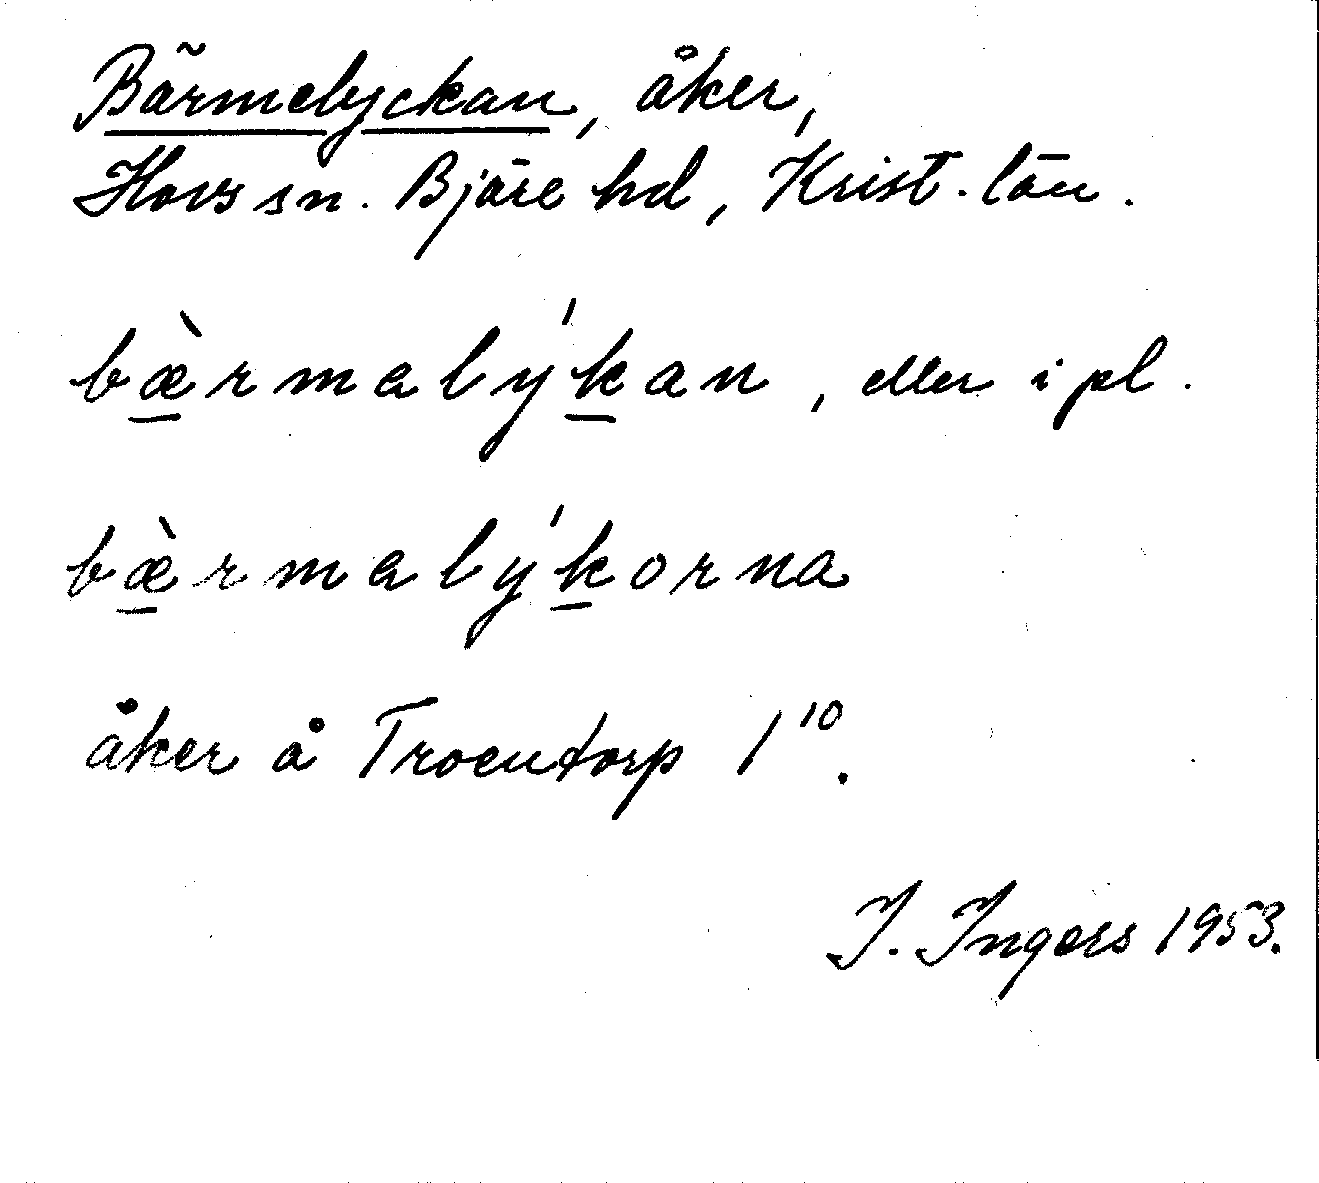 Bärmelyckan, åker,
Hovs sn. Bjäre hd, Krist. län.
bæ̀rmalýkan, eller i pl.
bæ̀rmalýkorna
åker å Troentorp 1¹⁰.
I. Ingers 1953.